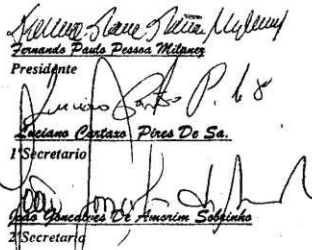 Fernando Paulo Pessoa Milanez
Presidente
Luciano Cartaxo Pires De Sa.
1ºSecretario
João Goncalves De Amorim Sobrinho
2ºSecretario